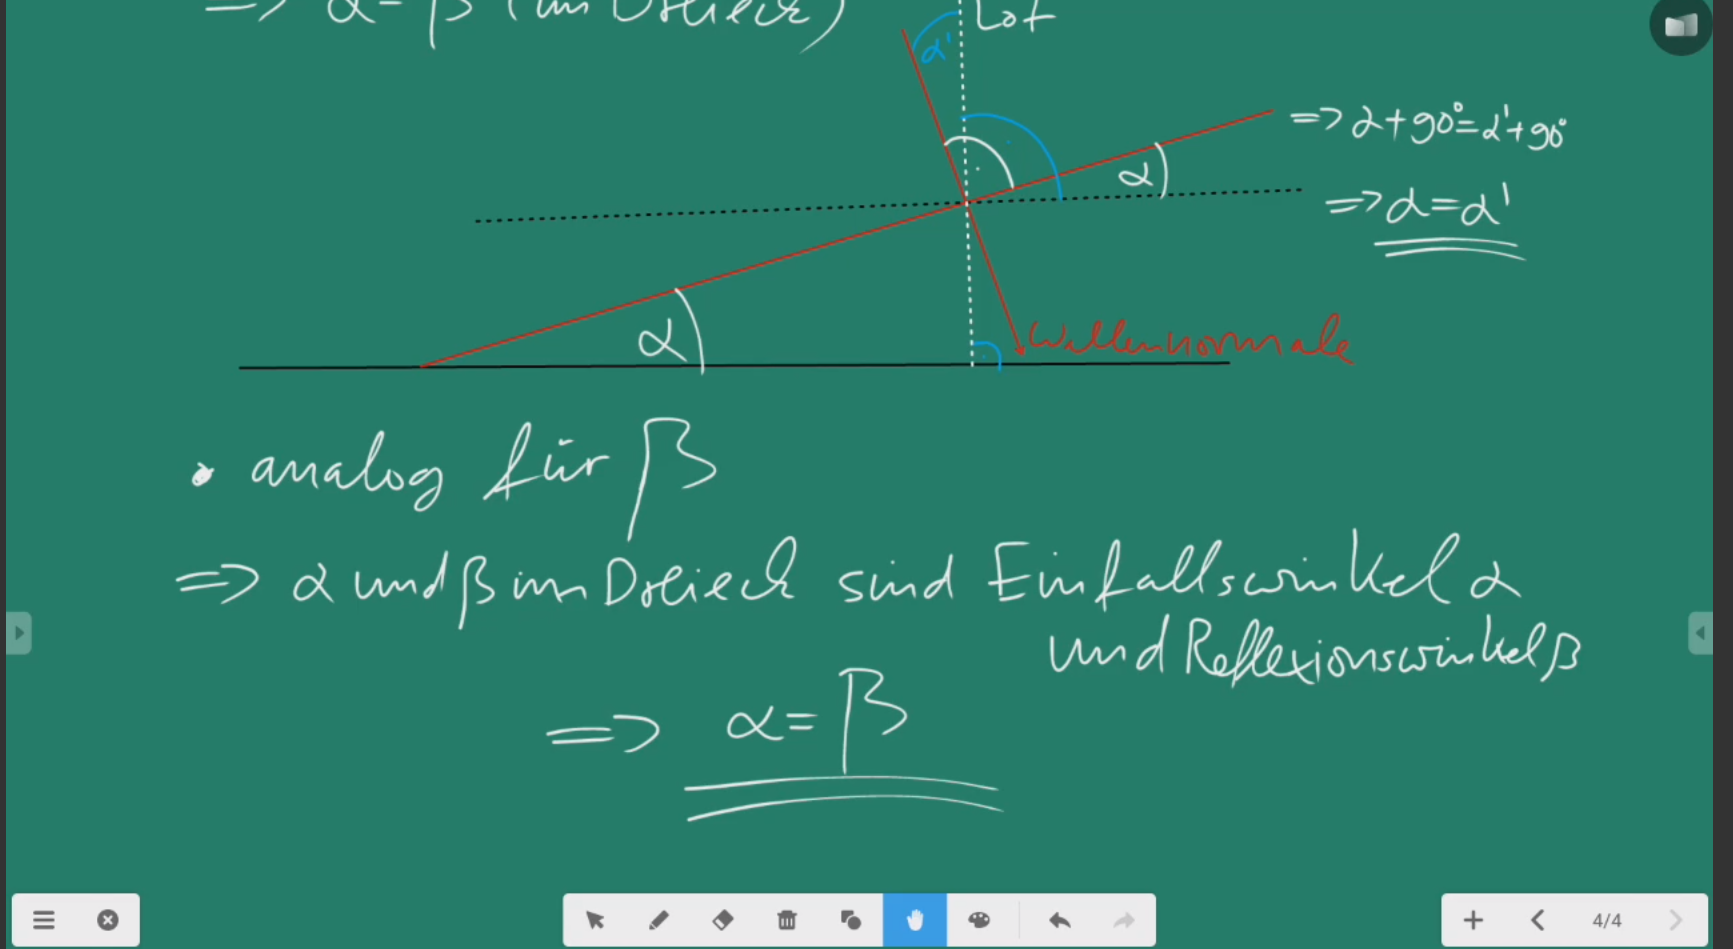 => α=β (im Dreieck)
Lot
α'
=> α+90°=α'+90°
α
=> α=α'
α
Wellennormale
• analog für β
=> α und β im Dreieck sind Einfallswinkel α
und Reflexionswinkel β
=> α=β
4/4